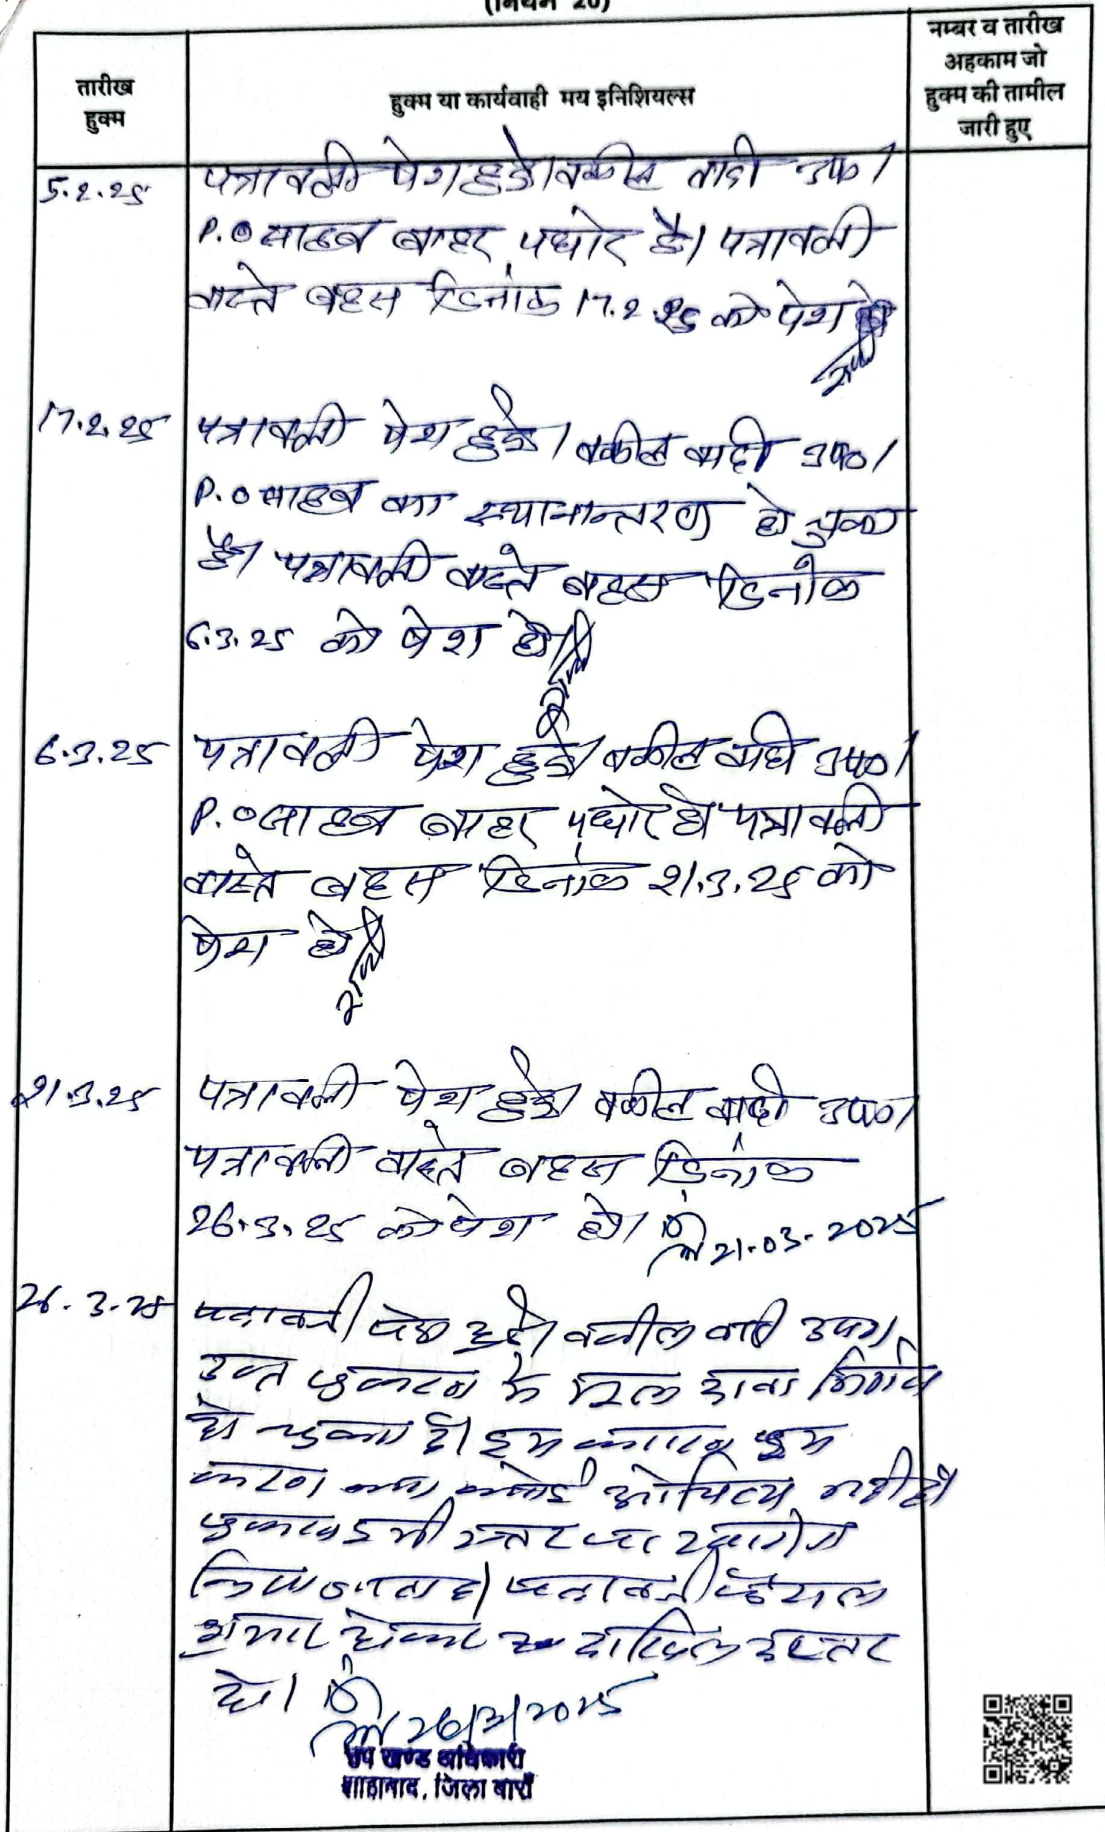 (नियम 20)
तारीख
हुक्म
हुक्म या कार्यवाही मय इनिशियल्स
नम्बर व तारीख
अहकाम जो
हुक्म की तामील
जारी हुए
5.2.25 पत्रावली पेश हुई। वकील वादी उप०।
P.O साहब बाहर पधारे है। पत्रावली
वास्ते बहस दिनांक 17.2.25 को पेश हो
17.2.25 पत्रावली पेश हुई। वकील वादी उप०।
P.O साहब का स्थानान्तरण हो चुका
है। पत्रावली वास्ते बहस दिनांक
6.3.25 को पेश हो।
6.3.25 पत्रावली पेश हुई। वकील वादी उप०।
P.O साहब बाहर पधारे है पत्रावली
वास्ते बहस दिनांक 21.3.25 को
पेश हो।
21.3.25 पत्रावली पेश हुई। वकील वादी उप०।
पत्रावली वास्ते बहस दिनांक
26.3.25 को पेश हो। 21-03-2025
26.3.25 पत्रावली पेश हुई। वकील वादी उप०।
उक्त प्रकरण के मूल दावा निर्णय
हो चुका है। इस कारण इस
का कोई औचित्य नहीं है।
प्रकरण इसी स्तर पर
किया जाता है। पत्रावली फैसल
शुमार होकर दाखिल दफ्तर
हो।
26/3/2025
उप खण्ड अधिकारी
शाहाबाद, जिला बारां